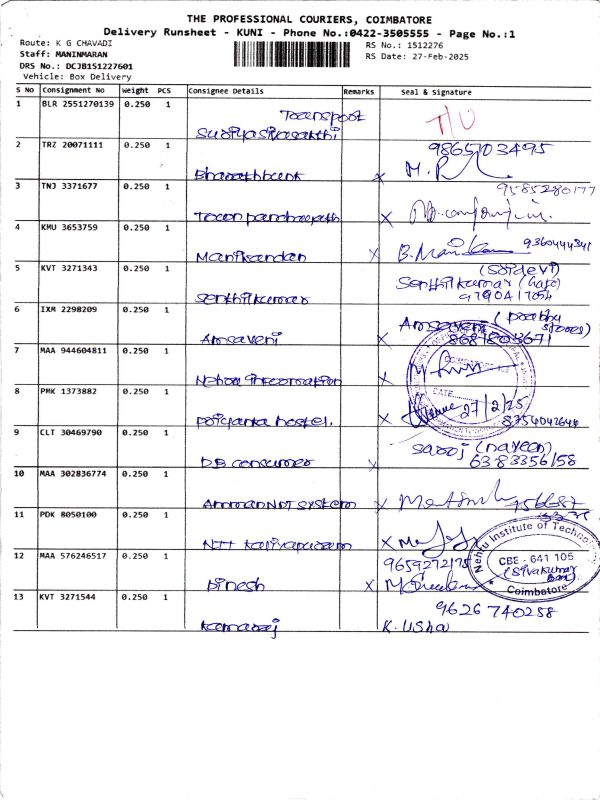 THE PROFESSIONAL COURIERS, COIMBATORE
Delivery Runsheet - KUNI - Phone No.:0422-3505555 - Page No.:1
Route: K G CHAVADI
RS No.: 1512276
Staff: MANINMARAN
RS Date: 27-Feb-2025
DRS No.: DCJB151227601
Vehicle: Box Delivery
S No Consignment No Weight PCS Consignee Details Remarks Seal & Signature
1 BLR 2551270139 0.250 1
T/U
2 TRZ 20071111 0.250 1 9865103495
3 TNJ 3371677 0.250 1 9585280177
4 KMU 3653759 0.250 1
Manikandan X 9360444341
5 KVT 3271343 0.250 1 (Sridevi)
Senthilkumar
Senthilkumar 9790417054
6 IXM 2298209 0.250 1 Amsaveni (prabhu stores)
Amsaveni X 8681803671
7 MAA 944604811 0.250 1
8 PMK 1373882 0.250 1 27/2/25
priyanka hostel. X 8754042644
9 CLT 30469790 0.250 1 saroj (naveen)
DB consumer X 6383356158
10 MAA 302836774 0.250 1
11 PDK 8050100 0.250 1
12 MAA 576246517 0.250 1 9659272175
Dinesh X
Nehru Institute of Technology
CBE - 641 105
(Sivakumar
Coimbatore
13 KVT 3271544 0.250 1 9626 740258
Kamaraj K. Usha